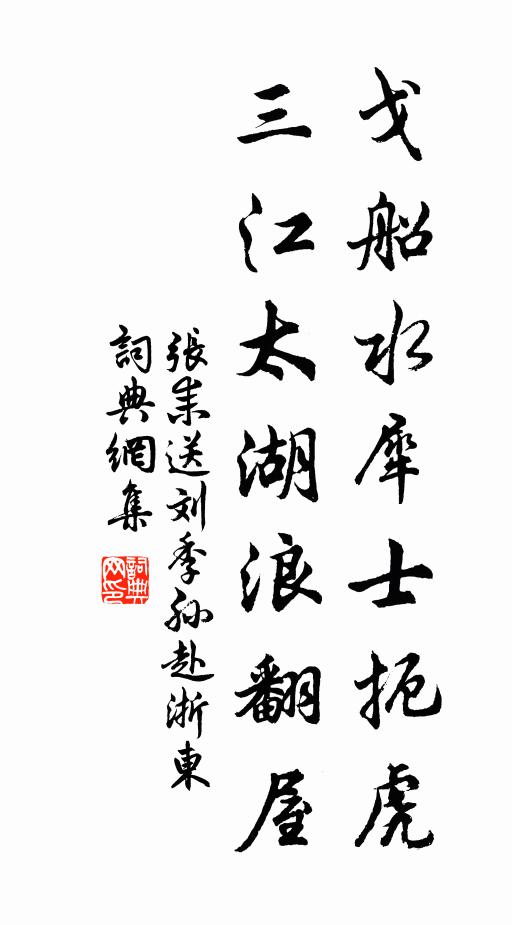 戈船水犀士扼虎
三江太湖浪翻屋
張耒送刘季孙赴浙東
詞典網集
詞典
网印